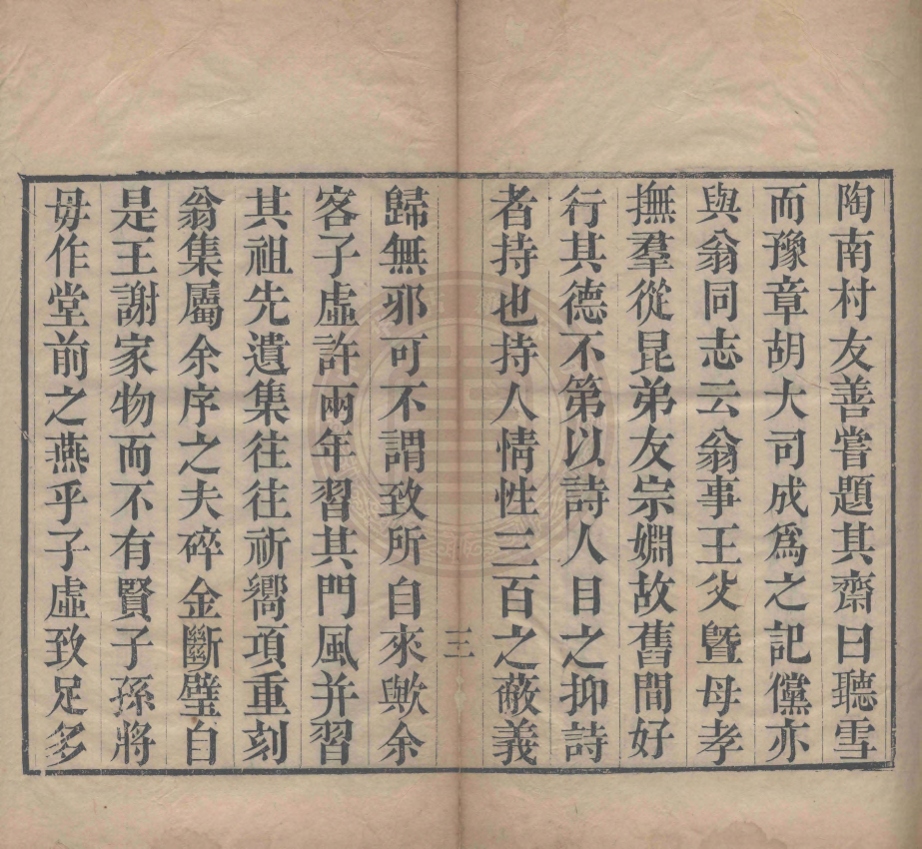 陶南村友善嘗題其齋曰聽雪
而豫章胡大司成爲之記儻亦
與翁同志云翁事王父曁母孝
撫羣從昆弟友宗婣故舊間好
行其德不第以詩人目之抑詩
者持也持人情性三百之蔽義
三
歸無邪可不謂致所自來歟余
客子虛許兩年習其門風并習
其祖先遺集往往祈嚮項重刻
翁集屬余序之夫碎金斷璧自
是王謝家物而不有賢子孫將
毋作堂前之燕乎子虛致足多